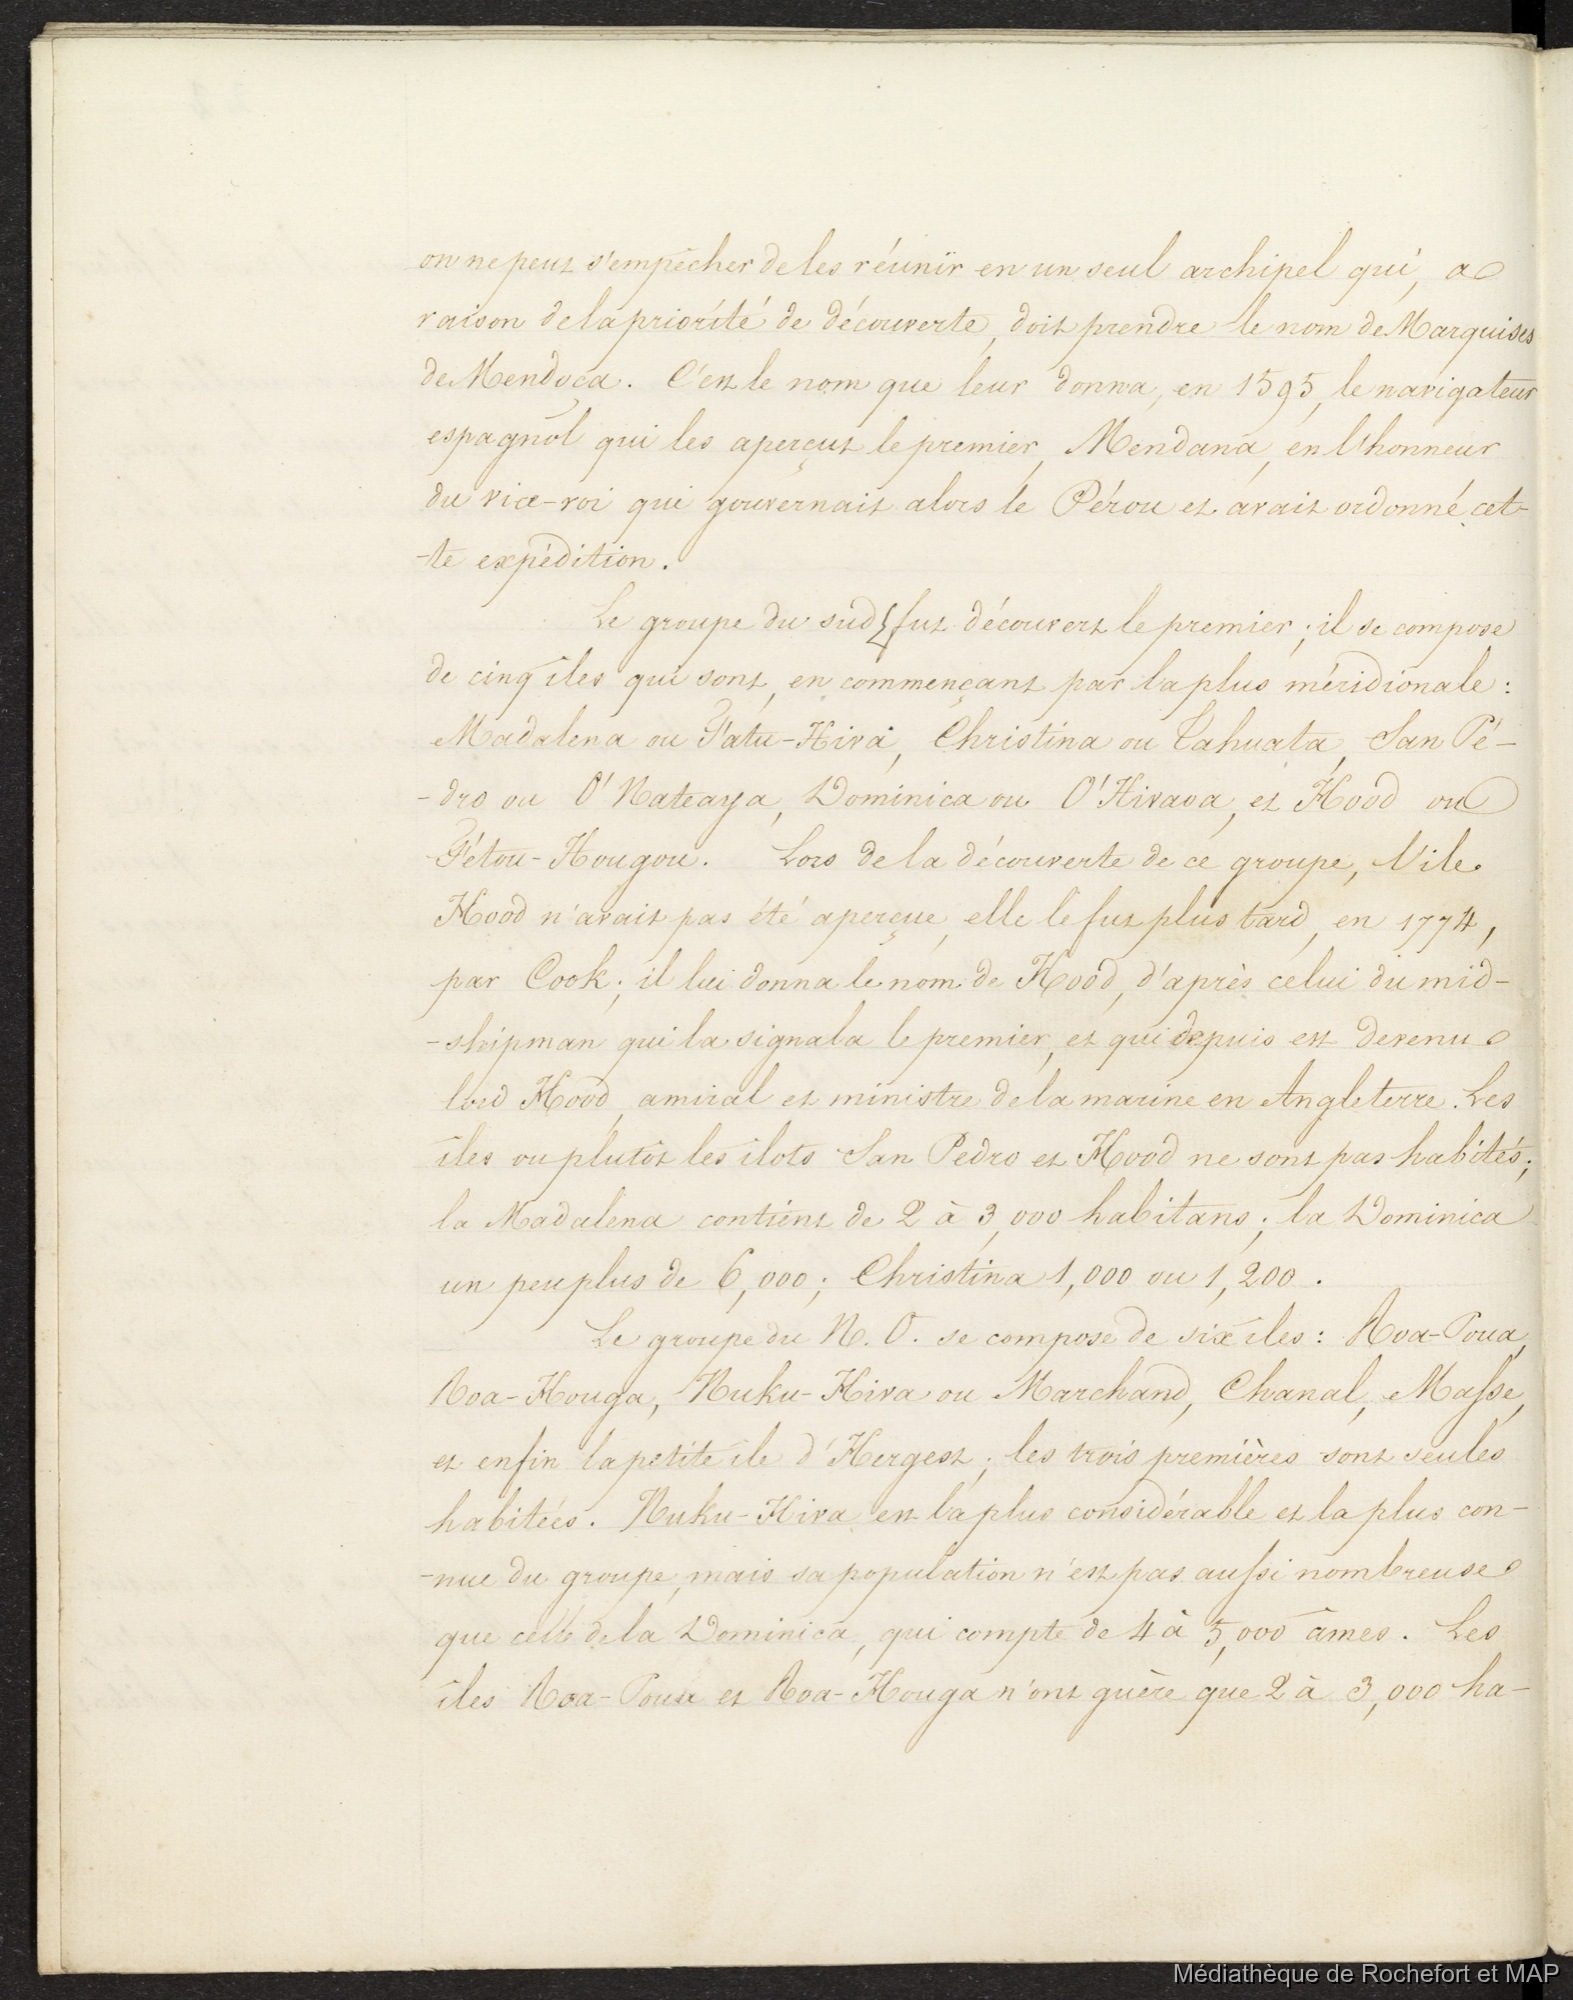 on ne peut s'empêcher de les réunir en un seul archipel qui, a
raison de la priorité de découverte, doit prendre le nom de Marquises
de Mendoça. C'est le nom que leur donna, en 1595, le navigateur
espagnol qui les aperçut le premier, Mendana, en l'honneur
du vice-roi qui gouvernait alors le Pérou et avait ordonné cet-
-te expédition.
Le groupe du sud fut découvert le premier; il se compose
de cinq îles qui sont, en commençant par la plus méridionale:
Madalena ou Fatu-Hiva, Christina ou Tahuata, San Pé-
-dro ou O'Nateaya, Dominica ou O'Hivaoa, et Hood ou
Fétou-Hougou. Lors de la découverte de ce groupe, l'île
Hood n'avait pas été aperçue, elle le fut plus tard, en 1774,
par Cook; il lui donna le nom de Hood, d'après celui du mid-
-shipman qui la signala le premier, et qui depuis est devenu
lord Hood, amiral et ministre de la marine en Angleterre. Les
îles ou plutôt les îlots San Pedro et Hood ne sont pas habités;
la Madalena contient de 2 à 3,000 habitans; la Dominica
un peu plus de 6,000; Christina 1,000 ou 1,200.
Le groupe du N. O. se compose de six îles: Roa-Poua,
Roa-Houga, Nuku-Hiva ou Marchand, Chanal, Masse,
et enfin la petite île d'Hergest; les trois premières sont seules
habitées. Nuku-Hiva est la plus considérable et la plus con-
-nue du groupe, mais sa population n'est pas aussi nombreuse
que celle de la Dominica, qui compte de 4 à 5,000 âmes. Les
îles Roa-Poua et Roa-Houga n'ont guère que 2 à 3,000 ha-
Médiathèque de Rochefort et MAP